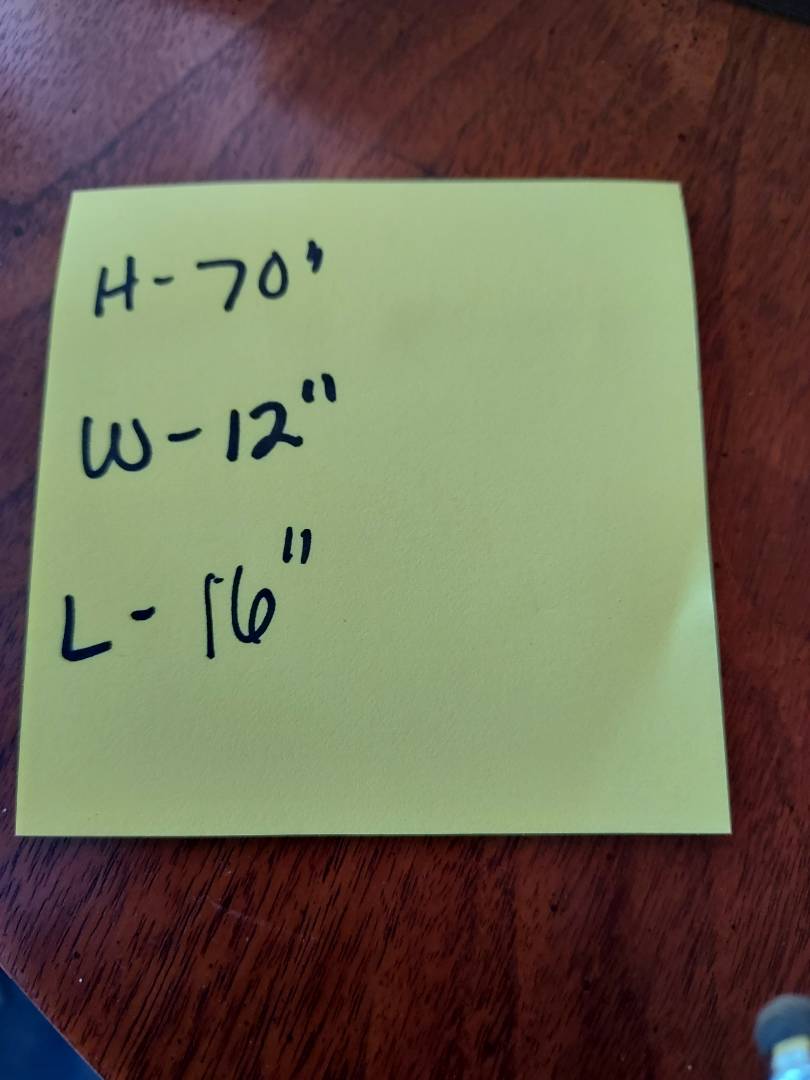 H - 70"
W - 12"
L - 16"